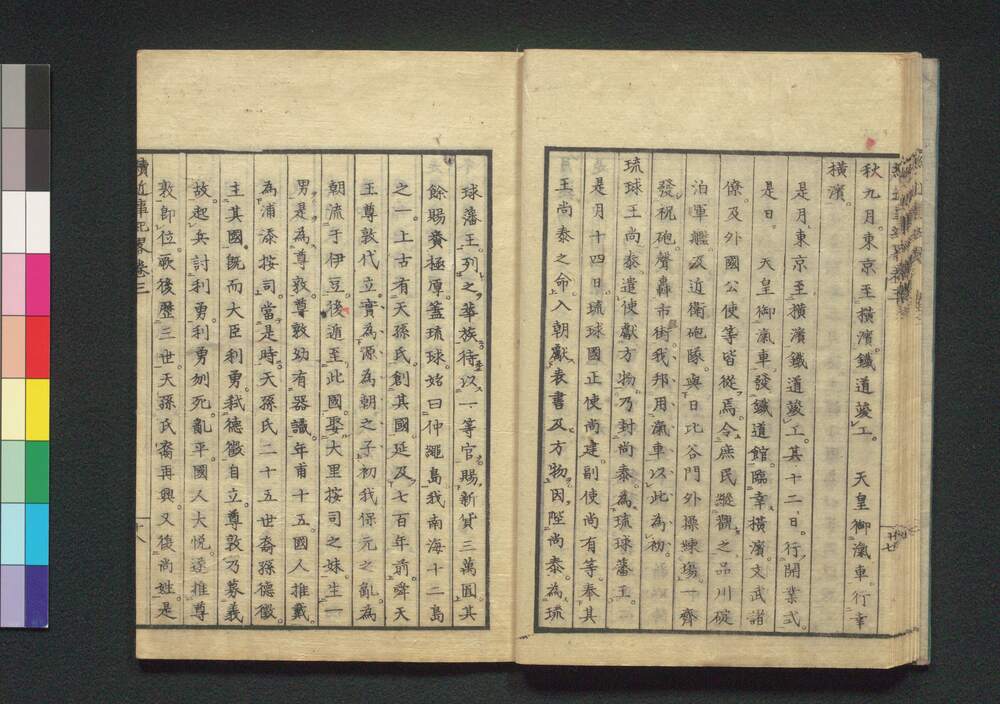 秋九月。東京至橫濱。鐵道竣工。　天皇御瀛車。行幸
橫濱。
是月。東京至橫濱鐵道竣工。其十二日。行開業式。
是日。　天皇御瀛車。發鐵道館。臨幸橫濱。文武諸
僚。及外國公使等皆從焉。令庶民縱觀之。品川碇
泊軍艦。及近衛砲隊。與日比谷門外操練場。一齊
發祝砲。聲轟市街。我邦用瀛車。以此為初。
琉球王尚泰。遣使獻方物。乃封尚泰。為琉球藩王。
是月十四日。琉球國正使尚建。副使尚有等。奉其
王尚泰之命。入朝獻表書及方物。因陞尚泰。為琉
球藩王。列之華族。待以一等官。賜新貨三萬圓。其
餘賜賚極厚。蓋琉球。始曰仲繩島。我南海十二島
之一。上古有天孫氏。創其國。延及七百年前。舜天
王尊敦代立。實為源為朝之子。初我保元之亂。為
朝流于伊豆。後遁至此國。娶大里按司之妹。生一
男。是為尊敦。尊敦幼有器識。年甫十五。國人推戴。
為浦添按司。當是時。天孫氏二十五世裔孫德徽。
主其國。既而大臣利勇。弒德徽自立。尊敦乃募義
故。起兵討利勇。利勇刎死。亂平。國人大悅。遂推尊
敦即位。爾後歷三世。天孫氏裔再興。又復尚姓。是
續近事紀畧卷三
十八